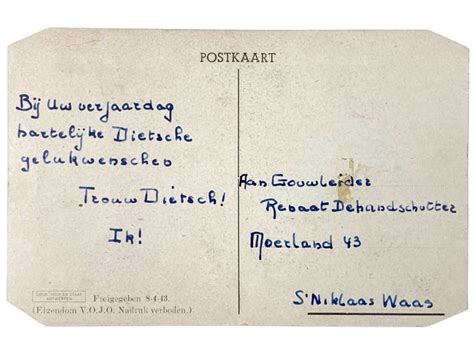 POSTKAART
Bij Uw verjaardag
hartelijke Dietsche
gelukwenschen
Trouw Dietsch!
Ik!
Aan Gouwleider
Renaat Dehandschutter
Moerland 43
St Niklaas Waas
Freigegeben 8-4-43.
(Eigendom V.O.J.O. Nadruk verboden.)